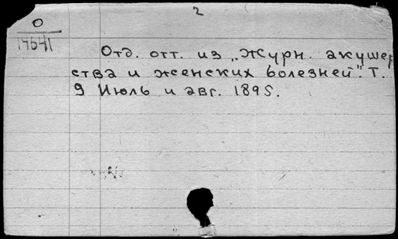 2
О
17541
Отд. отт. из „Журн. акушер
ства и женских болезней". Т.
9 Июль и авг. 1895.